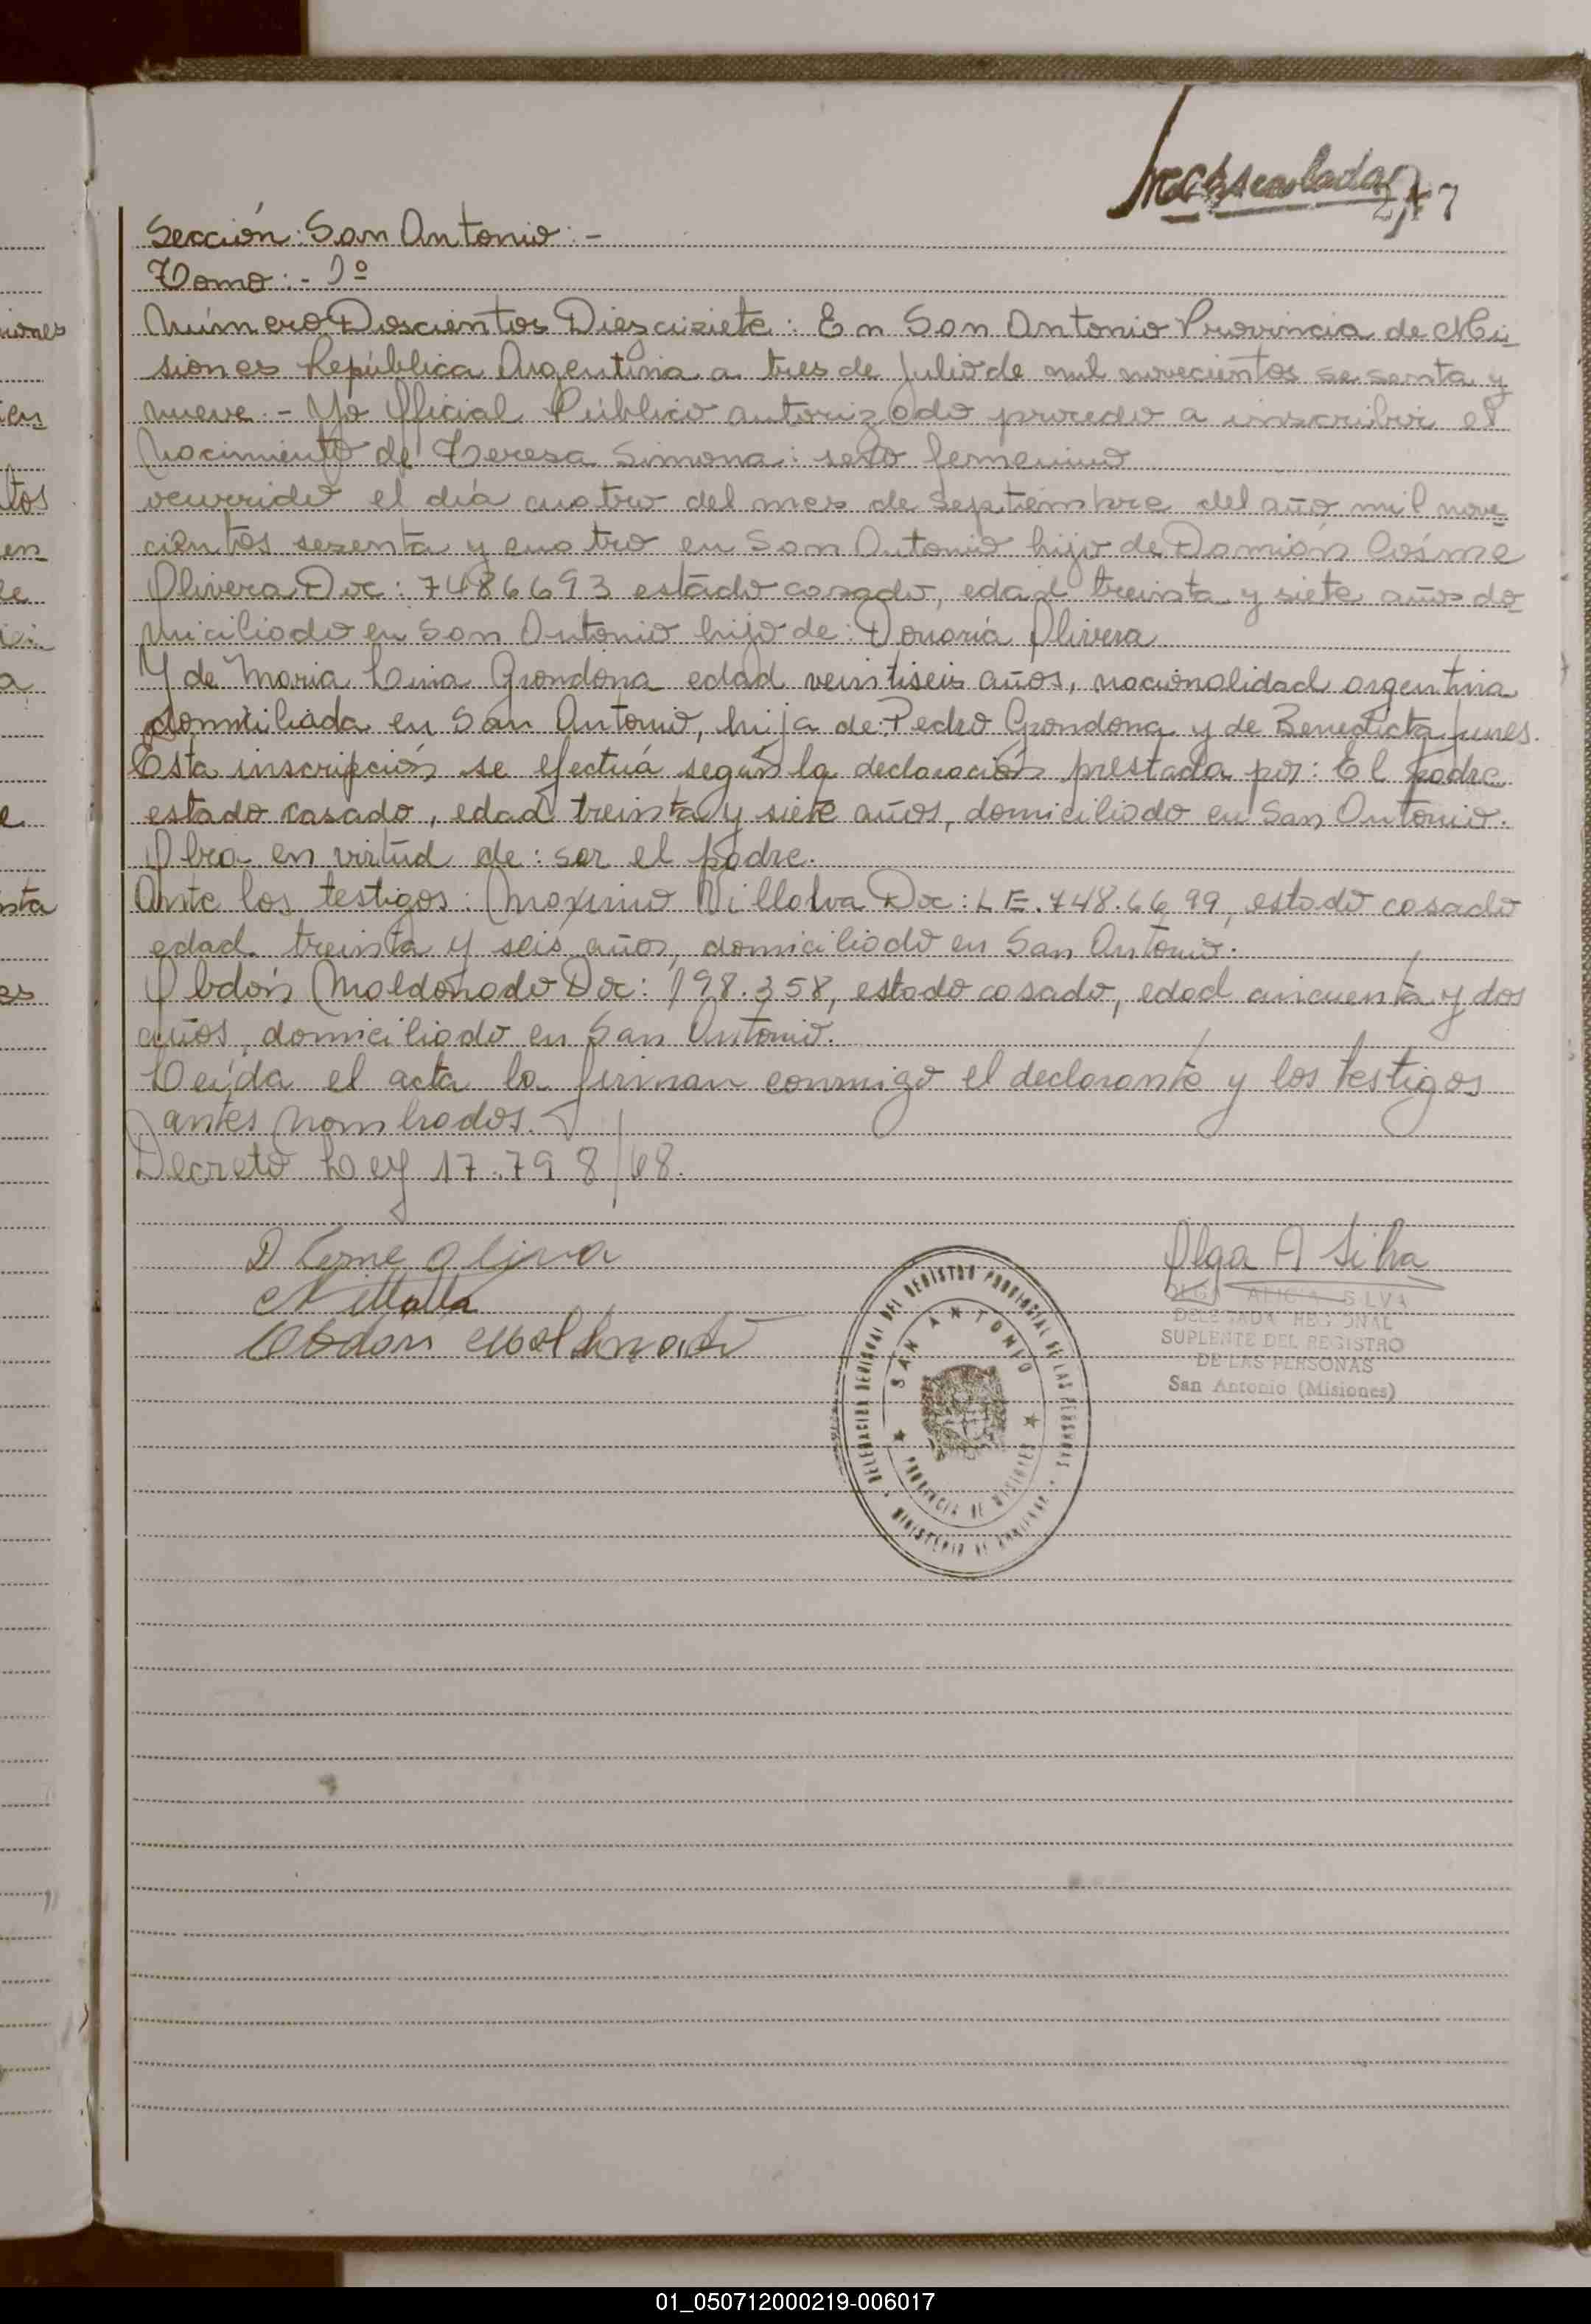 217
Sección: San Antonio:-
Tomo:- 1º
Número Doscientos Diescisiete: En San Antonio Provincia de Mi-
siones República Argentina a tres de Julio de mil novecientos sesenta y
nueve.- Yo Oficial Público autorizado procedo a inscribir el
Nacimiento de Teresa Simona: sexo femenino
ocurrido el día cuatro del mes de Septiembre del año mil nove-
cientos sesenta y cuatro en San Antonio hijo de Damián Cosme
Olivera Doc: 7486693 estado casado, edad treinta y siete años do-
miciliado en San Antonio hijo de: Donaria Olivera
Y de Maria Lina Grondona edad veintiseis años, nacionalidad argentina
domiciliada en San Antonio, hija de: Pedro Grondona y de Benedicta Junes.
Esta inscripción se efectuá según la declaración prestada por: El padre
estado casado, edad treinta y siete años, domiciliado en San Antonio.
Obra en virtud de: ser el padre.
Ante los testigos: Maximio Villalva Doc: L.E. 748.66 99, estado casado
edad treinta y seis años, domiciliado en San Antonio.
Obdón Maldonado Doc: 198.358, estado casado, edad cincuenta y dos
años, domiciliado en San Antonio.
Leída el acta la firman conmigo el declarante y los testigos
antes nombrados.
Decreto Ley 17.798/68.
D Cosme Olivera
Obdon Maldonado
Olga A Silva
OLGA ALICIA SILVA
DELEGADA REGIONAL
SUPLENTE DEL REGISTRO
DE LAS PERSONAS
San Antonio (Misiones)
DELEGACION REGIONAL DEL REGISTRO PROVINCIAL DE LAS PERSONAS
SAN ANTONIO
PROVINCIA DE MISIONES
MINISTERIO DE GOBIERNO
01_050712000219-006017